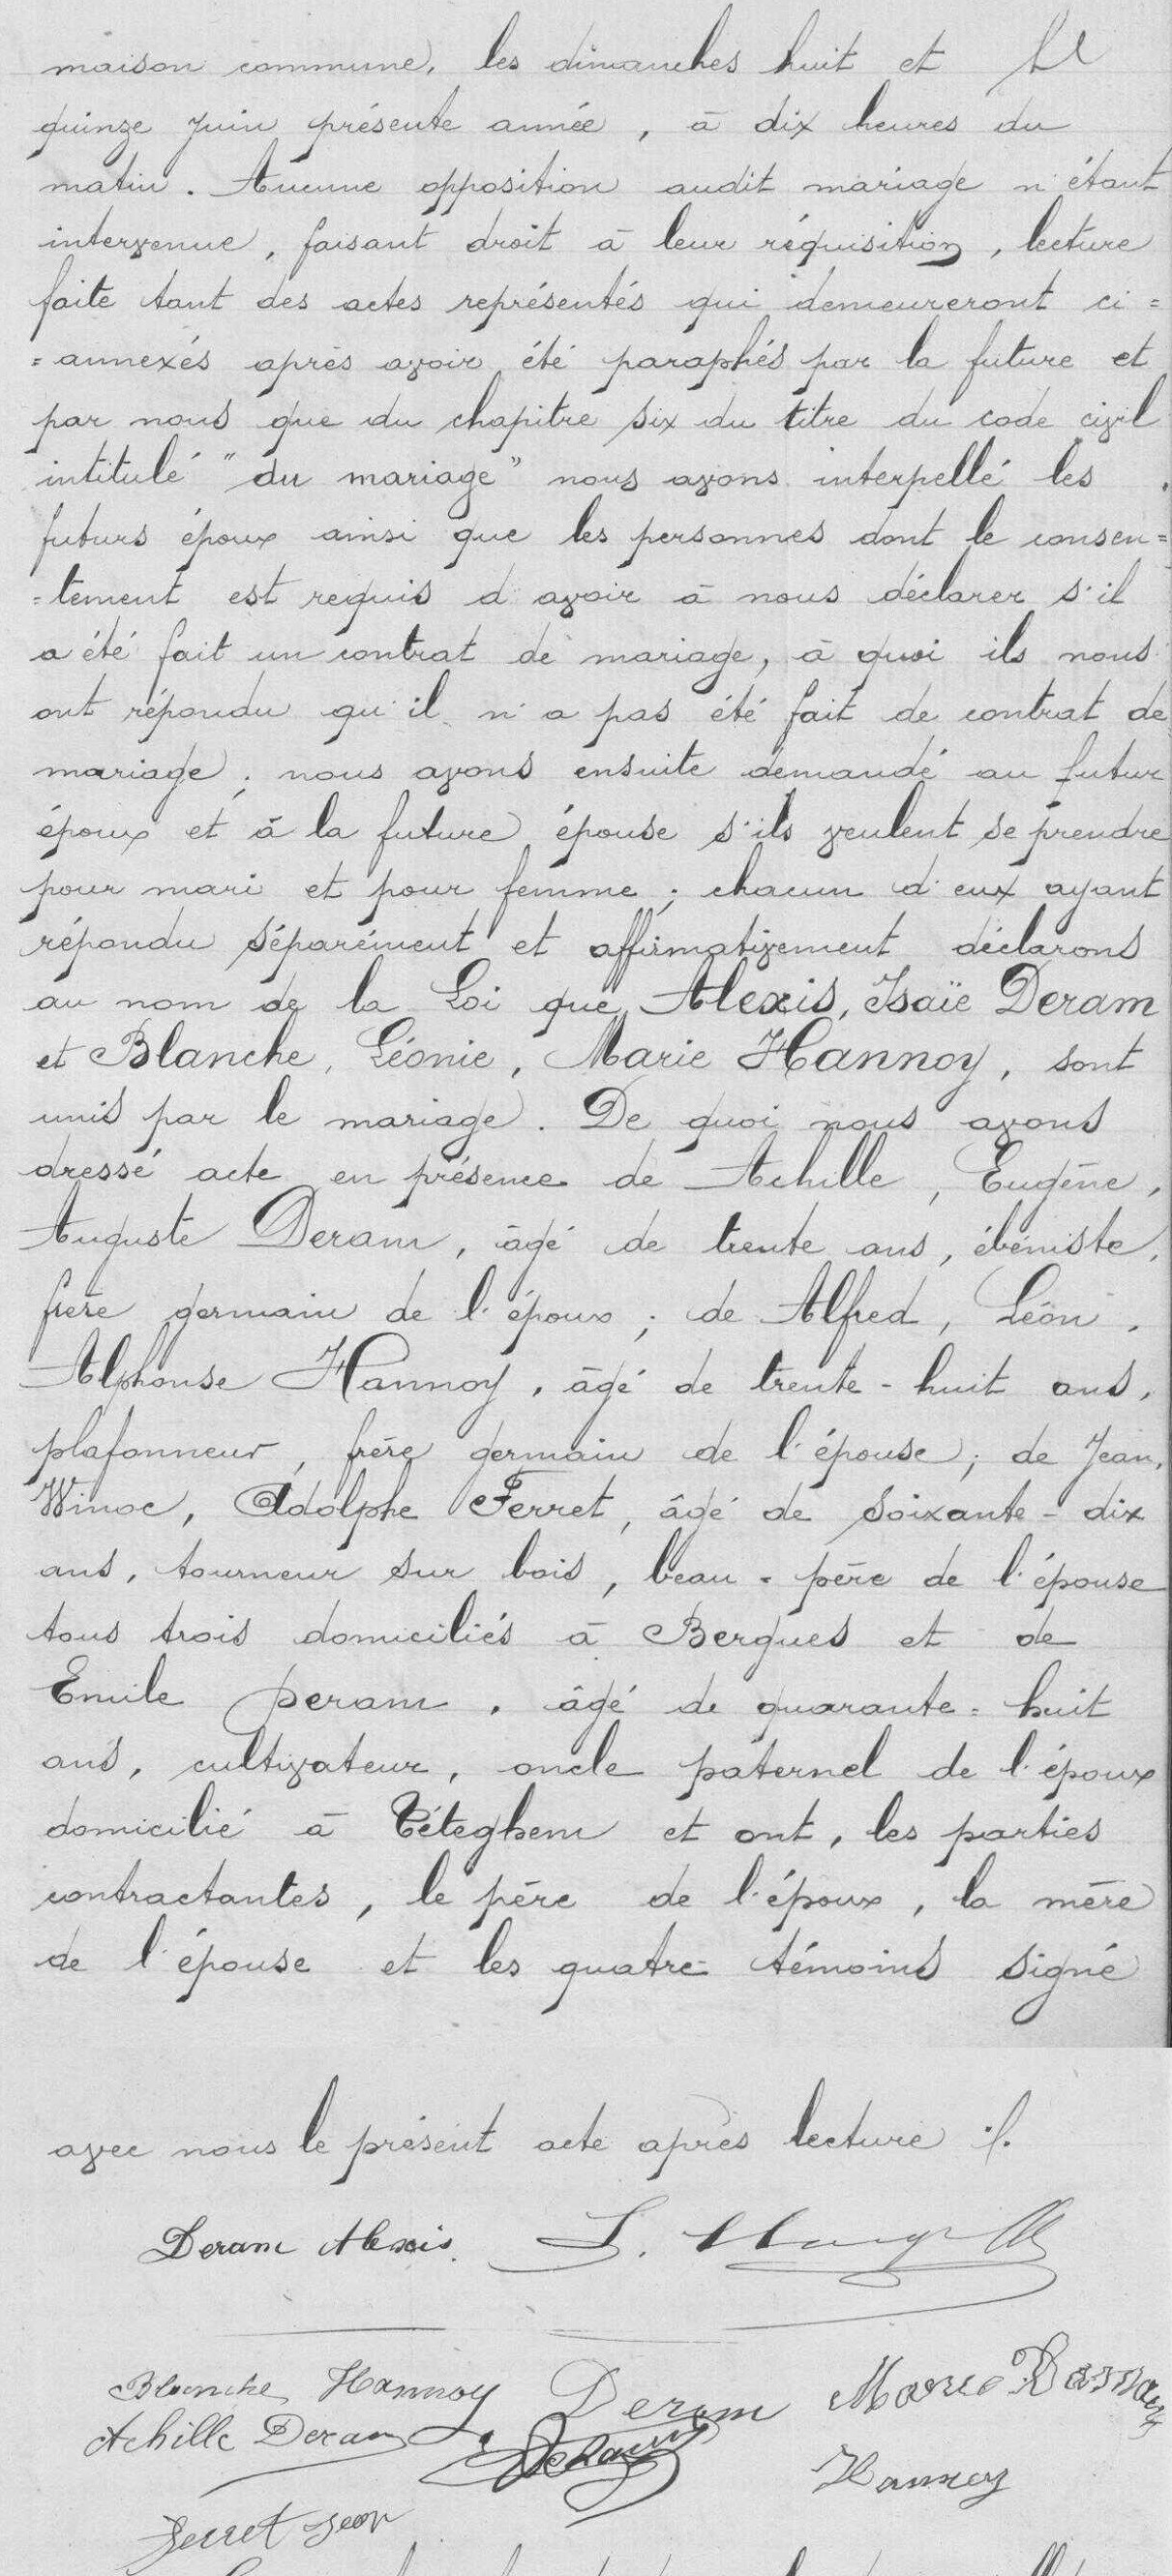 maison commune, les dimanches huit et
quinze juin présente année, à dix heures du
matin. Aucune opposition audit mariage n'étant
intervenue, faisant droit à leur réquisition, lecture
faite tant des actes représentés qui demeureront ci=
=annexés après avoir été paraphés par la future et
par nous que du chapitre six du titre du code civil
intitulé "du mariage" nous avons interpellé les
futurs époux ainsi que les personnes dont le consen=
=tement est requis d'avoir à nous déclarer s'il
a été fait un contrat de mariage, à quoi ils nous
ont répondu qu'il n'a pas été fait de contrat de
mariage; nous avons ensuite demandé au futur
époux et à la future épouse s'ils veulent se prendre
pour mari et pour femme; chacun d'eux ayant
répondu séparément et affirmativement déclarons
au nom de la Loi que Alexis, Isaïe Deram
et Blanche, Léonie, Marie Hannoy, sont
unis par le mariage. De quoi nous avons
dressé acte en présence de Achille, Eugène,
Auguste Deram, âgé de trente ans, ébéniste,
frère germain de l'époux; de Alfred, Léon,
Alphonse Hannoy, âgé de trente-huit ans,
plafonneur, frère germain de l'épouse; de Jean,
Winoc, Adolphe Ferret, âgé de soixante-dix
ans, tourneur sur bois, beau-père de l'épouse
tous trois domiciliés à Bergues et de
Emile Deram, âgé de quarante=huit
ans, cultivateur, oncle paternel de l'époux
domicilié à Téteghem et ont, les parties
contractantes, le père de l'époux, la mère
de l'épouse et les quatre témoins signé
avec nous le présent acte après lecture ./.
Deram Alexis.
Blanche Hannoy Deram Marie
Achille Deram Deram Hannoy
Ferret Jean